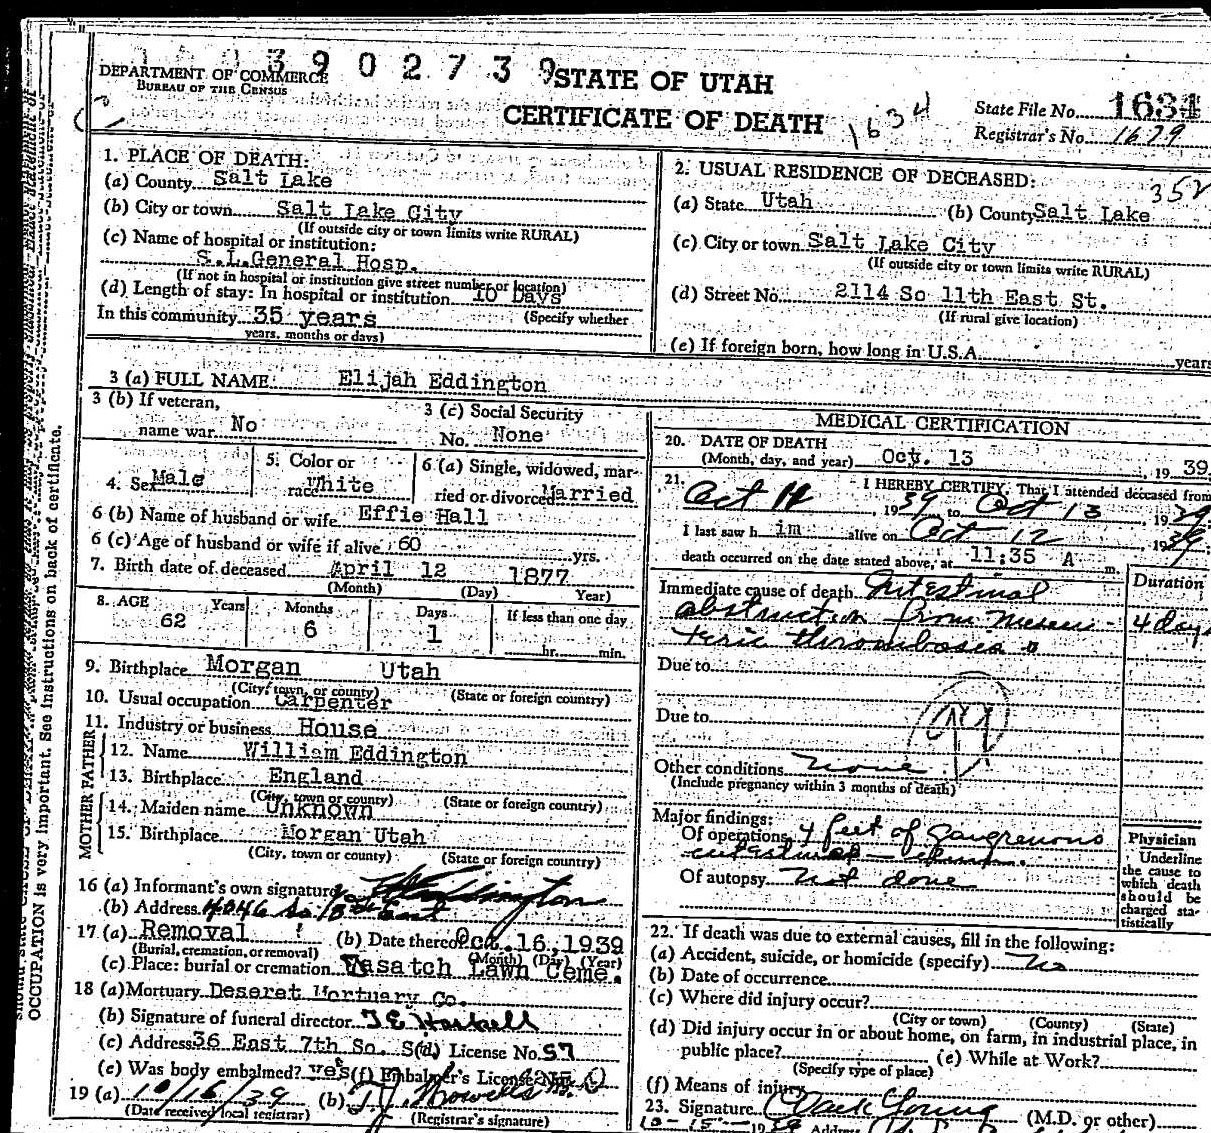 03902739
DEPARTMENT OF COMMERCE
BUREAU OF THE CENSUS
STATE OF UTAH
CERTIFICATE OF DEATH
1634
State File No. 1634
Registrar's No. 1679
1. PLACE OF DEATH:
(a) County Salt Lake
(b) City or town Salt Lake City
(If outside city or town limits write RURAL)
(c) Name of hospital or institution:
S.L.General Hosp.
(If not in hospital or institution give street number or location)
(d) Length of stay: In hospital or institution 10 Days
In this community 35 years (Specify whether
years, months or days)
2. USUAL RESIDENCE OF DECEASED:
352
(a) State Utah (b) County Salt Lake
(c) City or town Salt Lake City
(If outside city or town limits write RURAL)
(d) Street No. 2114 So 11th East St.
(If rural give location)
(e) If foreign born, how long in U.S.A. years
3 (a) FULL NAME: Elijah Eddington
3 (b) If veteran,
name war No
3 (c) Social Security
No. None
4. Sex Male
5. Color or
race White
6 (a) Single, widowed, mar-
ried or divorced Married
6 (b) Name of husband or wife Effie Hall
6 (c) Age of husband or wife if alive 60 yrs.
7. Birth date of deceased April 12 1877
(Month) (Day) Year)
8. AGE Years Months Days If less than one day
62 6 1 hr. min.
9. Birthplace Morgan Utah
(City, town, or county) (State or foreign country)
10. Usual occupation Carpenter
11. Industry or business House
FATHER
12. Name William Eddington
13. Birthplace England
(City, town or county) (State or foreign country)
MOTHER
14. Maiden name Unknown
15. Birthplace Morgan Utah
(City, town or county) (State or foreign country)
16 (a) Informant's own signature Eddington
(b) Address 4046 So 13th East
17 (a) Removal (b) Date thereof Oct. 16, 1939
(Burial, cremation, or removal) (Month) (Day) (Year)
(c) Place: burial or cremation Wasatch Lawn Ceme.
18 (a) Mortuary Deseret Mortuary Co.
(b) Signature of funeral director J E Haskell
(c) Address 36 East 7th So. S (d) License No. 57
(e) Was body embalmed? yes (f) Embalmer's License No.
19 (a) 10/16/39 (b) T.J. Howells
(Date received local registrar) (Registrar's signature)
MEDICAL CERTIFICATION
20. DATE OF DEATH
(Month, day, and year) Oct. 13 1939.
21. I HEREBY CERTIFY, That I attended deceased from
Oct 11, 1939 to Oct 13, 1939;
I last saw h im alive on Oct 12 1939;
death occurred on the date stated above, at 11:35 A m.
Immediate cause of death Intestinal Duration
obstruction from mesen- 4 days
teric thrombosis
Due to
Due to
Other conditions none
(Include pregnancy within 3 months of death)
Major findings:
Of operations 4 feet of gangrenous
Of autopsy not done
Physician
Underline
the cause to
which death
should be
charged sta-
tistically
22. If death was due to external causes, fill in the following:
(a) Accident, suicide, or homicide (specify) No
(b) Date of occurrence
(c) Where did injury occur?
(City or town) (County) (State)
(d) Did injury occur in or about home, on farm, in industrial place, in
public place? (e) While at Work?
(Specify type of place)
(f) Means of injury
23. Signature Young (M.D. or other)
10-15- 1939 Address
OCCUPATION is very important. See instructions on back of certificate.